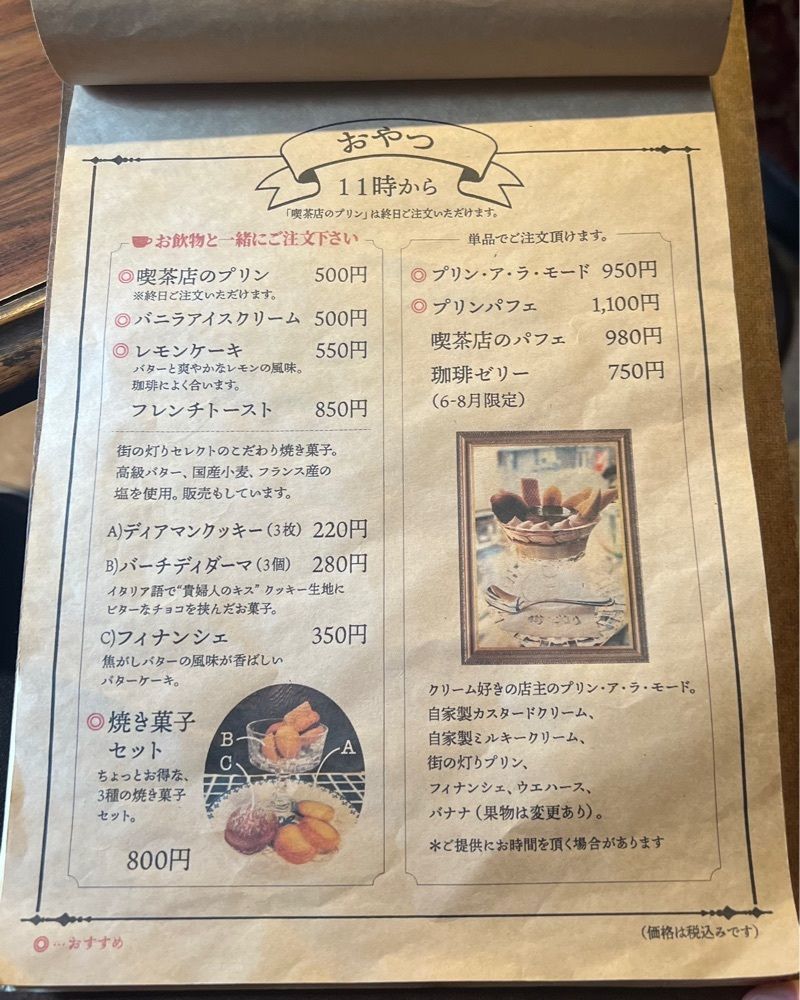 おやつ
11時から
「喫茶店のプリン」は終日ご注文いただけます。
お飲物と一緒にご注文下さい
◎喫茶店のプリン 500円
※終日ご注文いただけます。
◎バニラアイスクリーム 500円
◎レモンケーキ 550円
バターと爽やかなレモンの風味。
珈琲によく合います。
フレンチトースト 850円
街の灯りセレクトのこだわり焼き菓子。
高級バター、国産小麦、フランス産の
塩を使用。販売もしています。
A)ディアマンクッキー(3枚) 220円
B)バーチディダーマ(3個) 280円
イタリア語で“貴婦人のキス” クッキー生地に
ビターなチョコを挟んだお菓子。
C)フィナンシェ 350円
焦がしバターの風味が香ばしい
バターケーキ。
◎焼き菓子
セット
ちょっとお得な、
3種の焼き菓子
セット。
800円
B
C
A
単品でご注文頂けます。
◎プリン・ア・ラ・モード 950円
◎プリンパフェ 1,100円
喫茶店のパフェ 980円
珈琲ゼリー 750円
(6-8月限定)
クリーム好きの店主のプリン・ア・ラ・モード。
自家製カスタードクリーム、
自家製ミルキークリーム、
街の灯りプリン、
フィナンシェ、ウエハース、
バナナ(果物は変更あり)。
*ご提供にお時間を頂く場合があります
◎…おすすめ
(価格は税込みです)